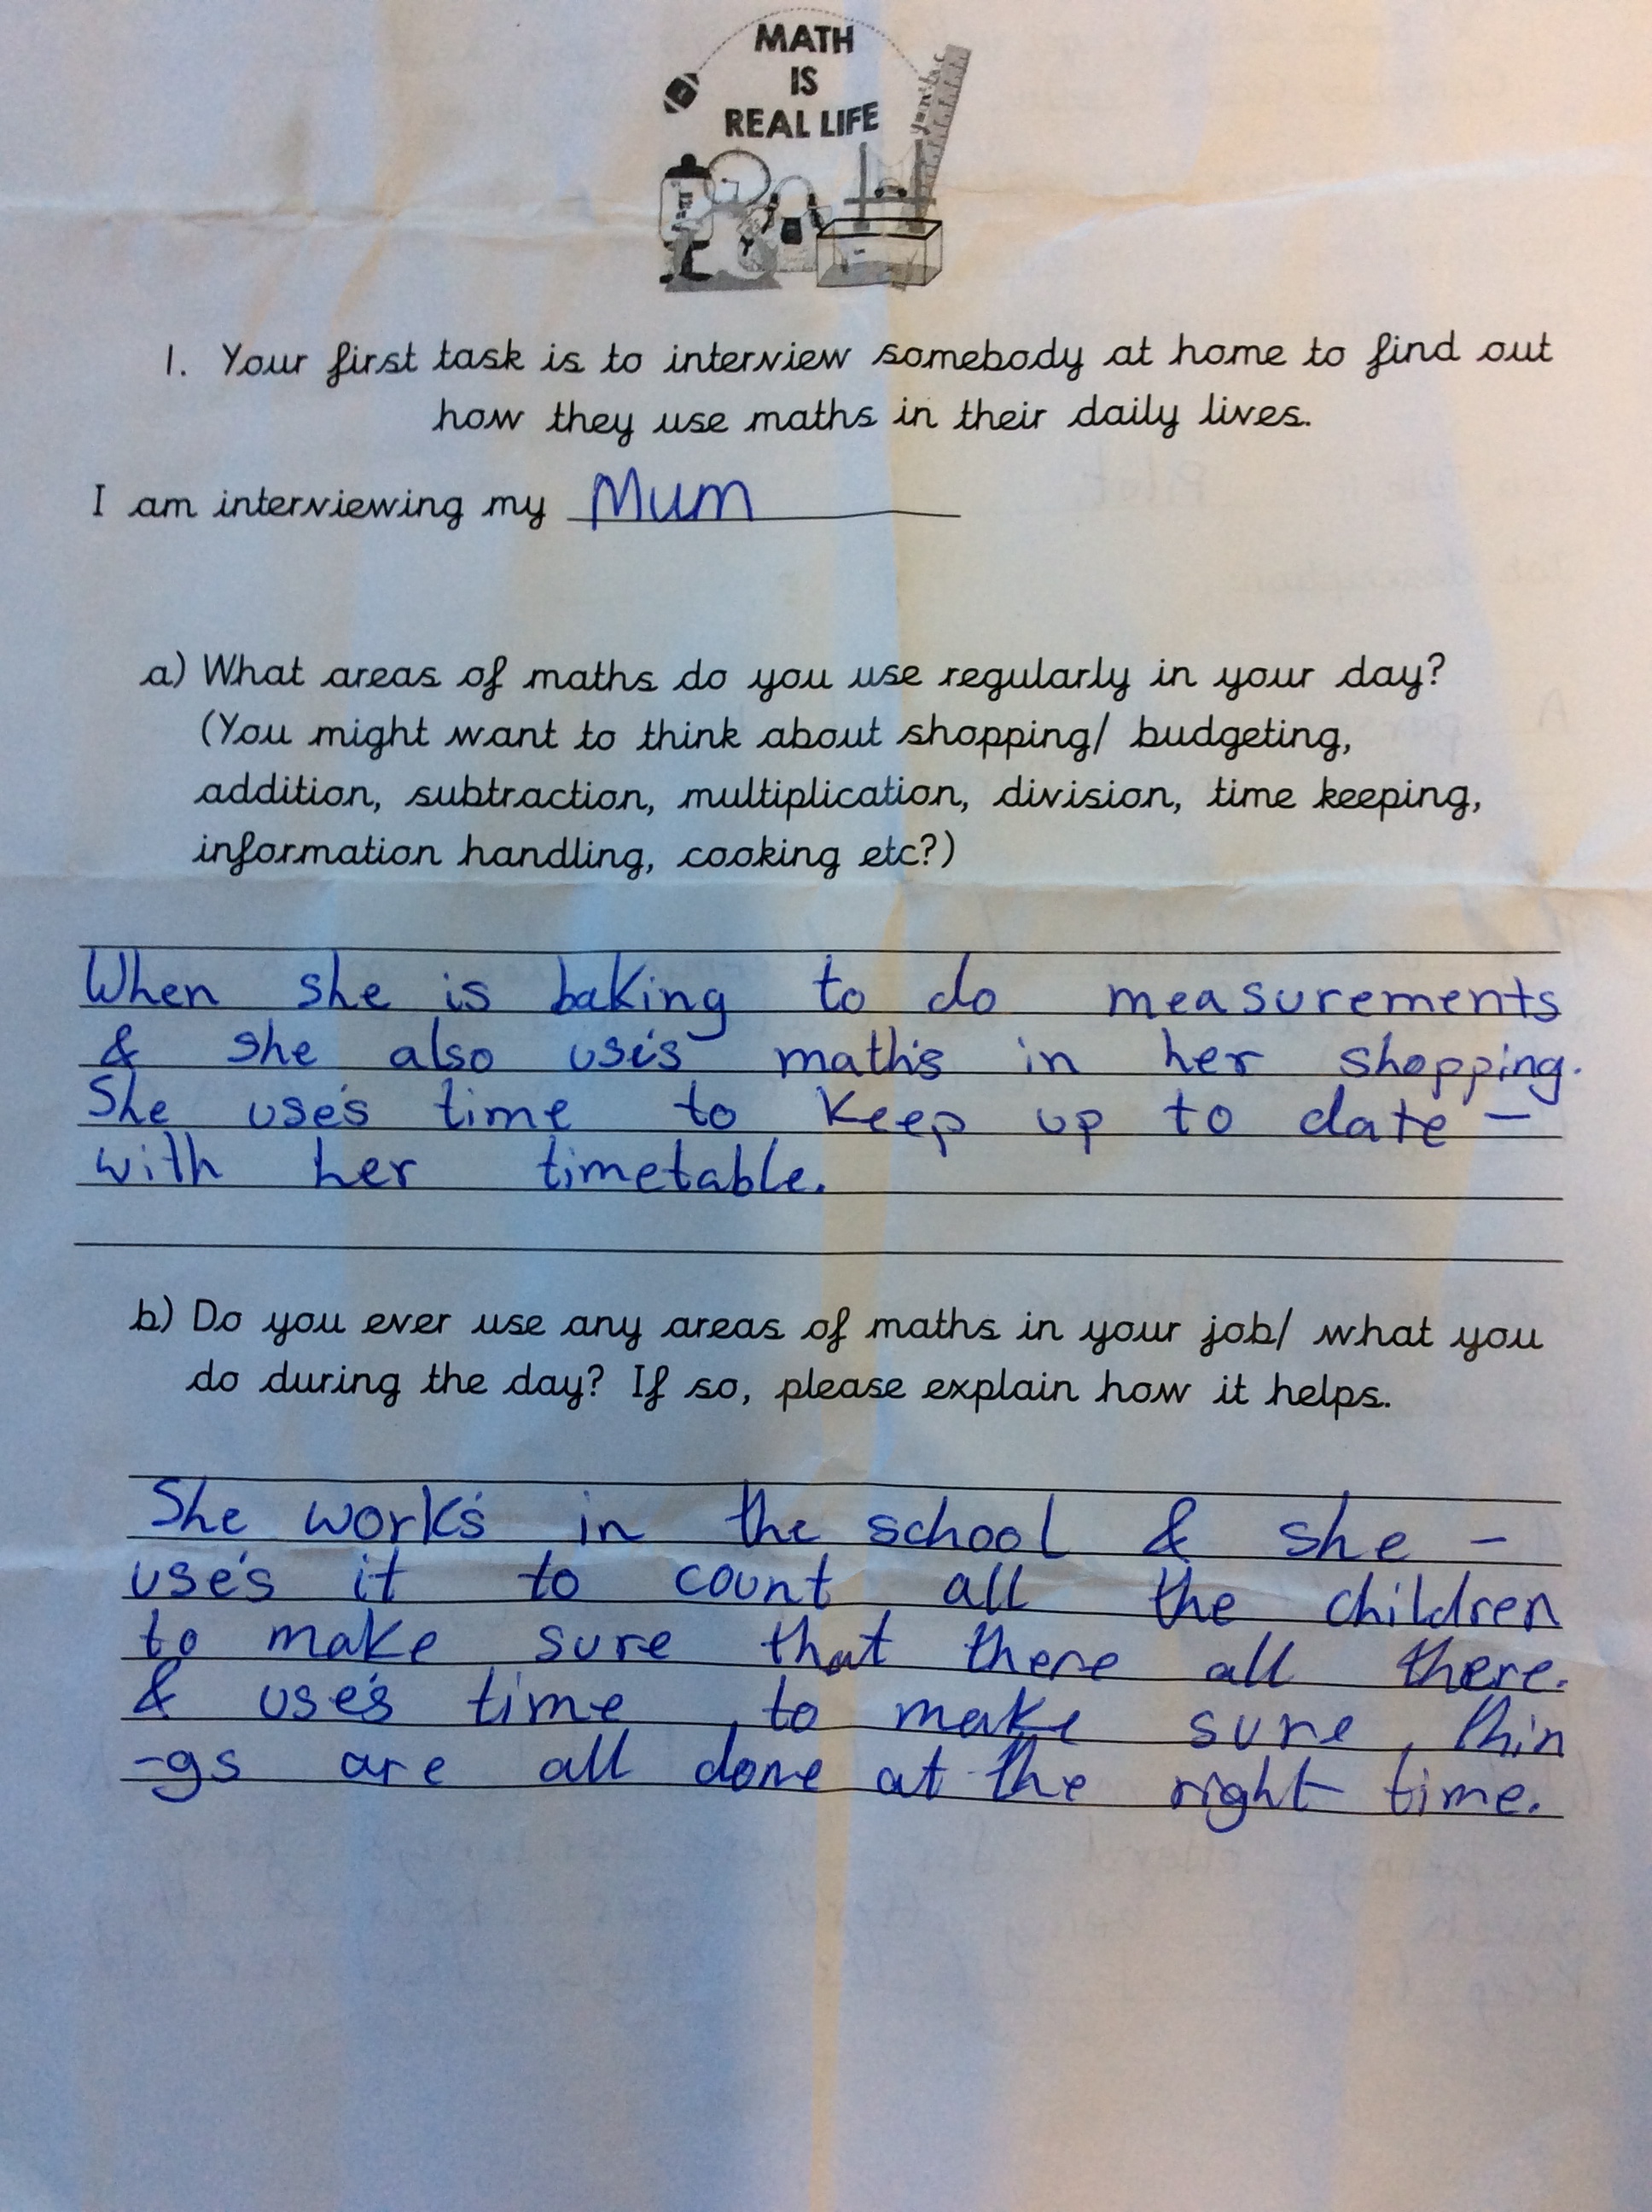 MATH
IS
REAL LIFE
1. Your first task is to interview somebody at home to find out
how they use maths in their daily lives.
I am interviewing my Mum
a) What areas of maths do you use regularly in your day?
(You might want to think about shopping/ budgeting,
addition, subtraction, multiplication, division, time keeping,
information handling, cooking etc?)
When she is baking to do measurements
& she also use's math's in her shopping.
She use's time to keep up to date -
with her timetable.
b) Do you ever use any areas of maths in your job/ what you
do during the day? If so, please explain how it helps.
She work's in the school & she -
use's it to count all the children
to make sure that there all there.
& use's time to make sure thin
-gs are all done at the right time.